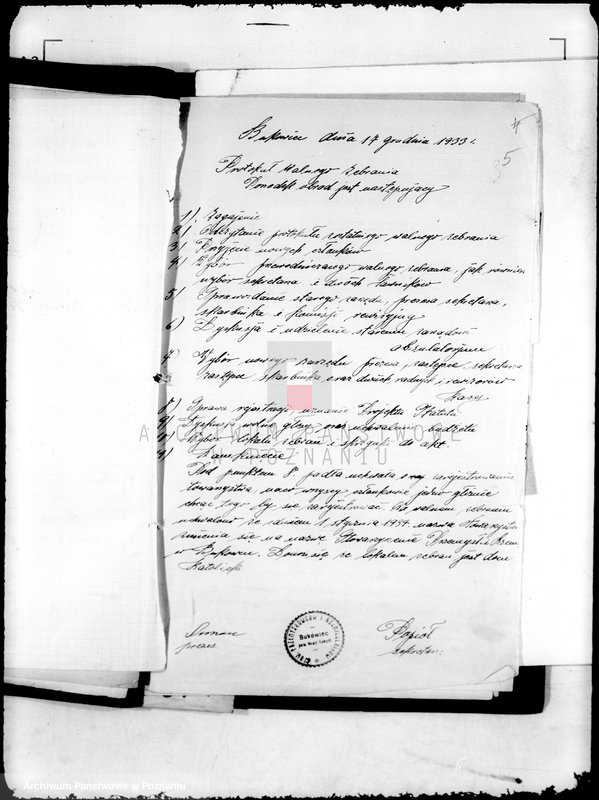 4
5
Bukowiec dnia 17 grudnia 1933 r.
Protokuł Walnego Zebrania
Porządek obrad jest następujący
1) Zagajenie
2) Odczytanie protokułu ostatniego walnego zebrania
3) Przyjęcie nowych członków
4) Wybór przewodniczącego walnego zebrania, jak również
wybór sekretarza i dwóch ławników
5) Sprawozdanie starego zarządu, prezesa sekretarza,
skarbnika i komisji rewizyjnej
6) Dyskusja i udzielenie staremu zarządowi
absulutorjum
7 Wybór nowego zarządu prezesa, zastępcę, sekretarza
zastępcę skarbnika oraz dwóch radnych i rewizorów
kasy
8) Sprawa rejestracji, uznanie Projektu Statutu
9) Dyskusja wolne głosy oraz uchwalenie budżetu
10) Wybór lokalu zebrań i
do akt
11) Zamknięcie
Pod punktem 8 padła uchwała
zarejestrowanie
towarzystwa,
wszyscy członkowie
chcąc tego by się zarejestrować. Po walnem zebraniu
uchwalono ze dniem 1 stycznia 1934 nazwa towarzystwa
zmienia się na nazwę Stowarzyszenie
w Bukowcu. Donosi się że lokalem zebrań jest dom
Katolicki
prezes.
Popioł
sekretarz
Bukówiec
ARCHIWUM PAŃSTWOWE
W POZNANIU
Archiwum Państwowe w Poznaniu